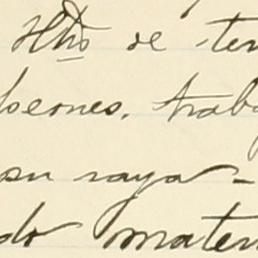 Htõs de ter
peones. traba
su raya -
do mater